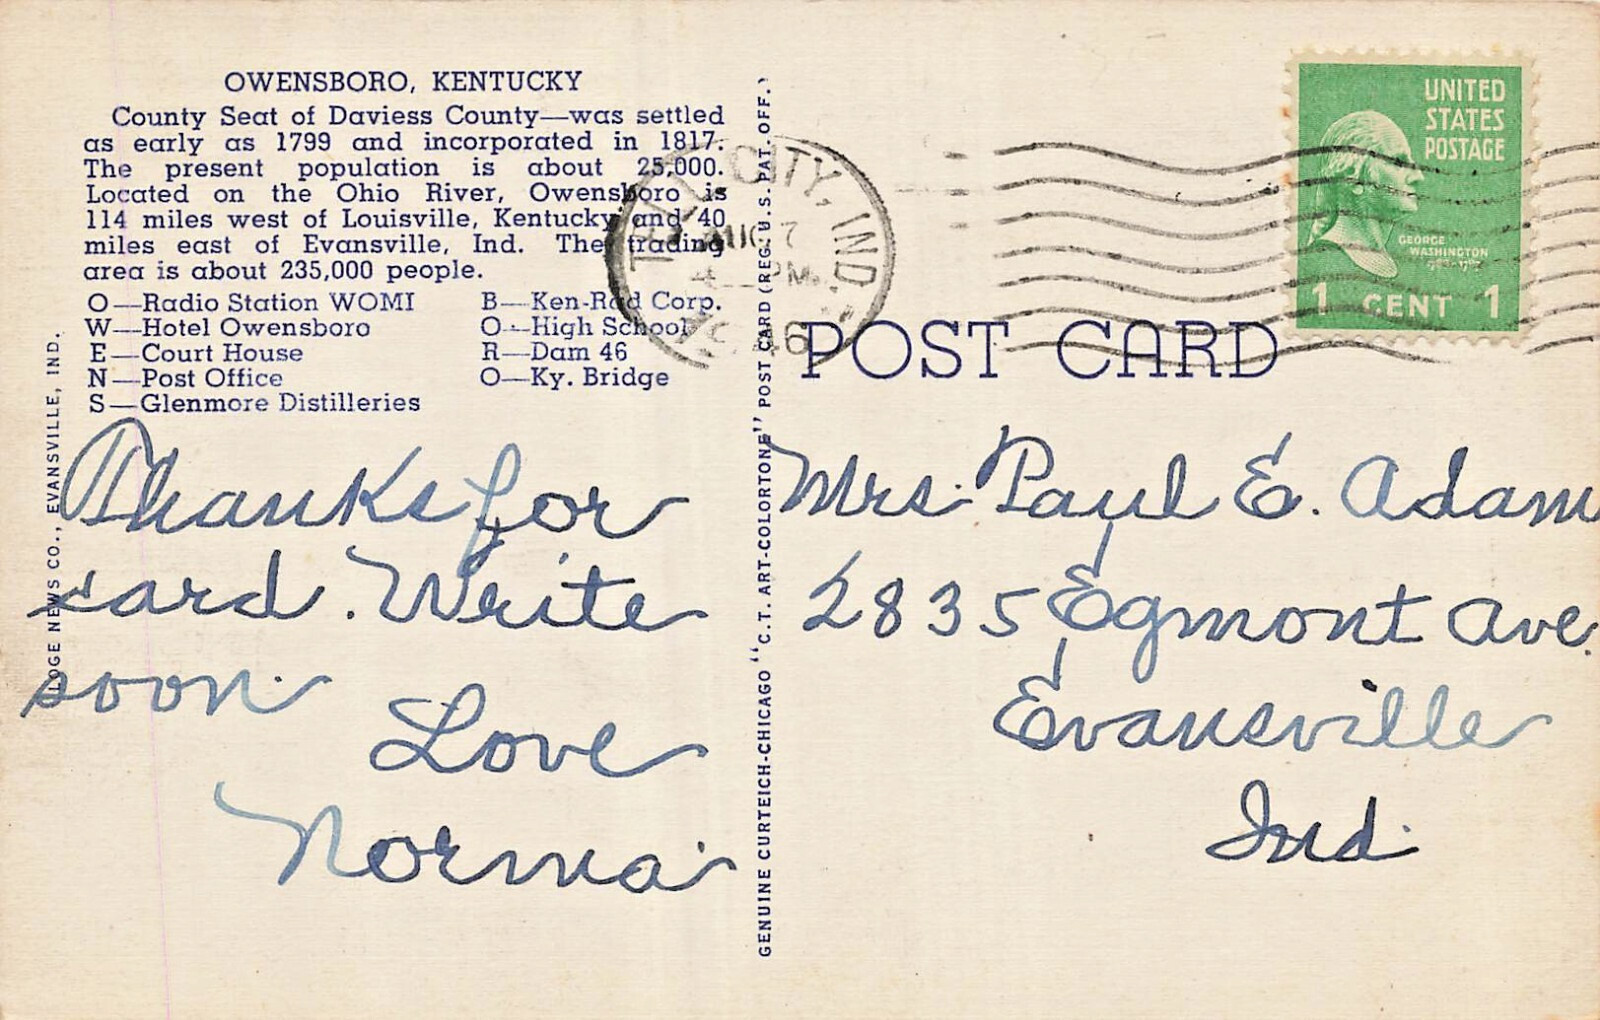 OWENSBORO, KENTUCKY
County Seat of Daviess County—was settled
as early as 1799 and incorporated in 1817.
The present population is about 25,000.
Located on the Ohio River, Owensboro is
114 miles west of Louisville, Kentucky and 40
miles east of Evansville, Ind. The trading
area is about 235,000 people.
O—Radio Station WOMI
W—Hotel Owensboro
E—Court House
N—Post Office
S—Glenmore Distilleries
B—Ken-Rad Corp.
O—High School
R—Dam 46
O—Ky. Bridge
LOGE NEWS CO., EVANSVILLE, IND.
Thanks for
card. Write
soon.
Love
Norma
GENUINE CURTEICH-CHICAGO "C.T. ART-COLORTONE" POST CARD (REG. U.S. PAT. OFF.)
TELL CITY, IND.
AUG 7
4 PM
1946
UNITED
STATES
POSTAGE
GEORGE
WASHINGTON
1 CENT 1
POST CARD
Mrs. Paul E. Adam
2835 Egmont Ave.
Evansville
Ind.